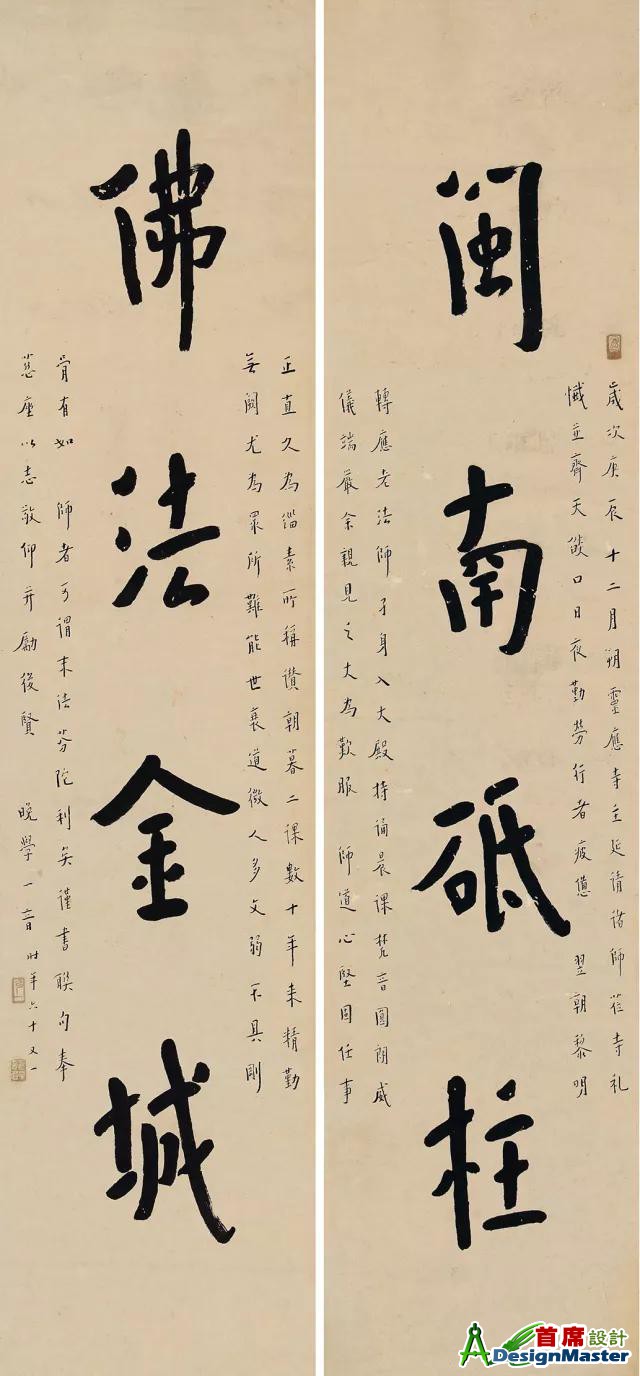 歲次庚辰十二月朔靈應寺主延請諸師莅寺礼
懺並齋天燄口日夜勤勞行者疲憊 翌朝黎明
閩南砥柱
轉應老法師孑身入大殿持誦晨課梵音圓朗威
儀端嚴余親見之大為歎服 師道心堅固任事
正直久為緇素所稱讚朝暮二課數十年來精勤
無闕尤為眾所難能世衰道微人多文弱不具剛
佛法金城
骨有如 師者可謂末法芬陀利矣謹書聯句奉
慈座以志敬仰并勵後賢 晚學一音時年六十又一
首席設計
ADesignMaster